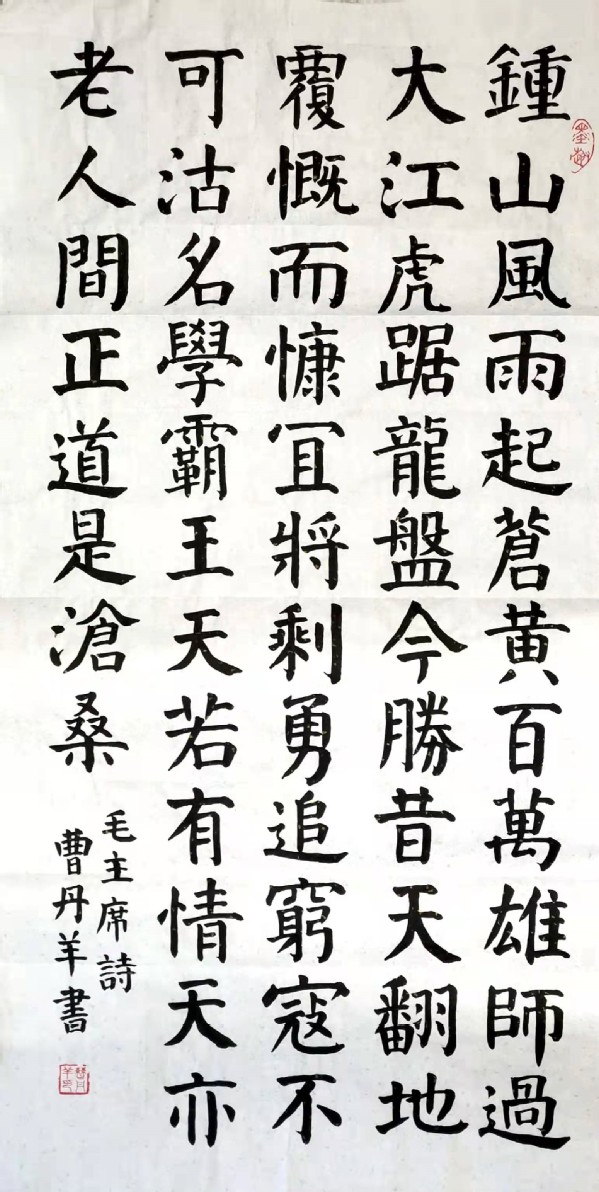 鍾山風雨起蒼黄百萬雄師過
大江虎踞龍盤今勝昔天翻地
覆慨而慷冝將剩勇追窮寇不
可沽名學霸王天若有情天亦
老人間正道是滄桑
毛主席詩
曹丹羊書